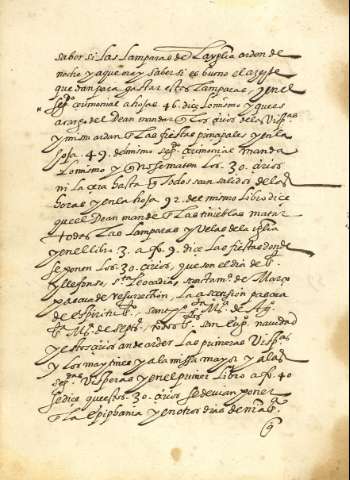 saber si las lamparas de la yglia arden de
noche y aqui mẽ y saber si es bueno el azeyte
que dan para gastar estas lamparas, y en el
sepº cerimonial a hojas 46. dize lo mismo y que es
a cargo del dean mandar q los cirios de las vispas
y missas ardan q las fiestas principales y en la
foja 49. del mismo sepº cerimonial manda
lo mismo y q no se maten los .30. cirios
ni la cera hasta q todos sean salidos del as
horas y en la hoja 92. del mismo libro dice
que el Dean mande q las tinieblas matar
todas las lamparas y velas de la iglia
y en el libro 3. a fº 9. dice las fiestas donde
se ponen los .30. cirios, que son el dia de Sº
yllefonso, Sta Leocadia, de Março
pascua de resurection, la ascension pascua
de espiritu Sº. de Agº
de septe, todos Sos, su luƷ, navidad
y estos cirios an de arder las primeras vispas
y los maytines y a la missa mayor y a las
segdas visperas y en el primer libro a fº. 40
se dice que estos .30. cirios se devian poner
q la epiphania y en otros dias demas